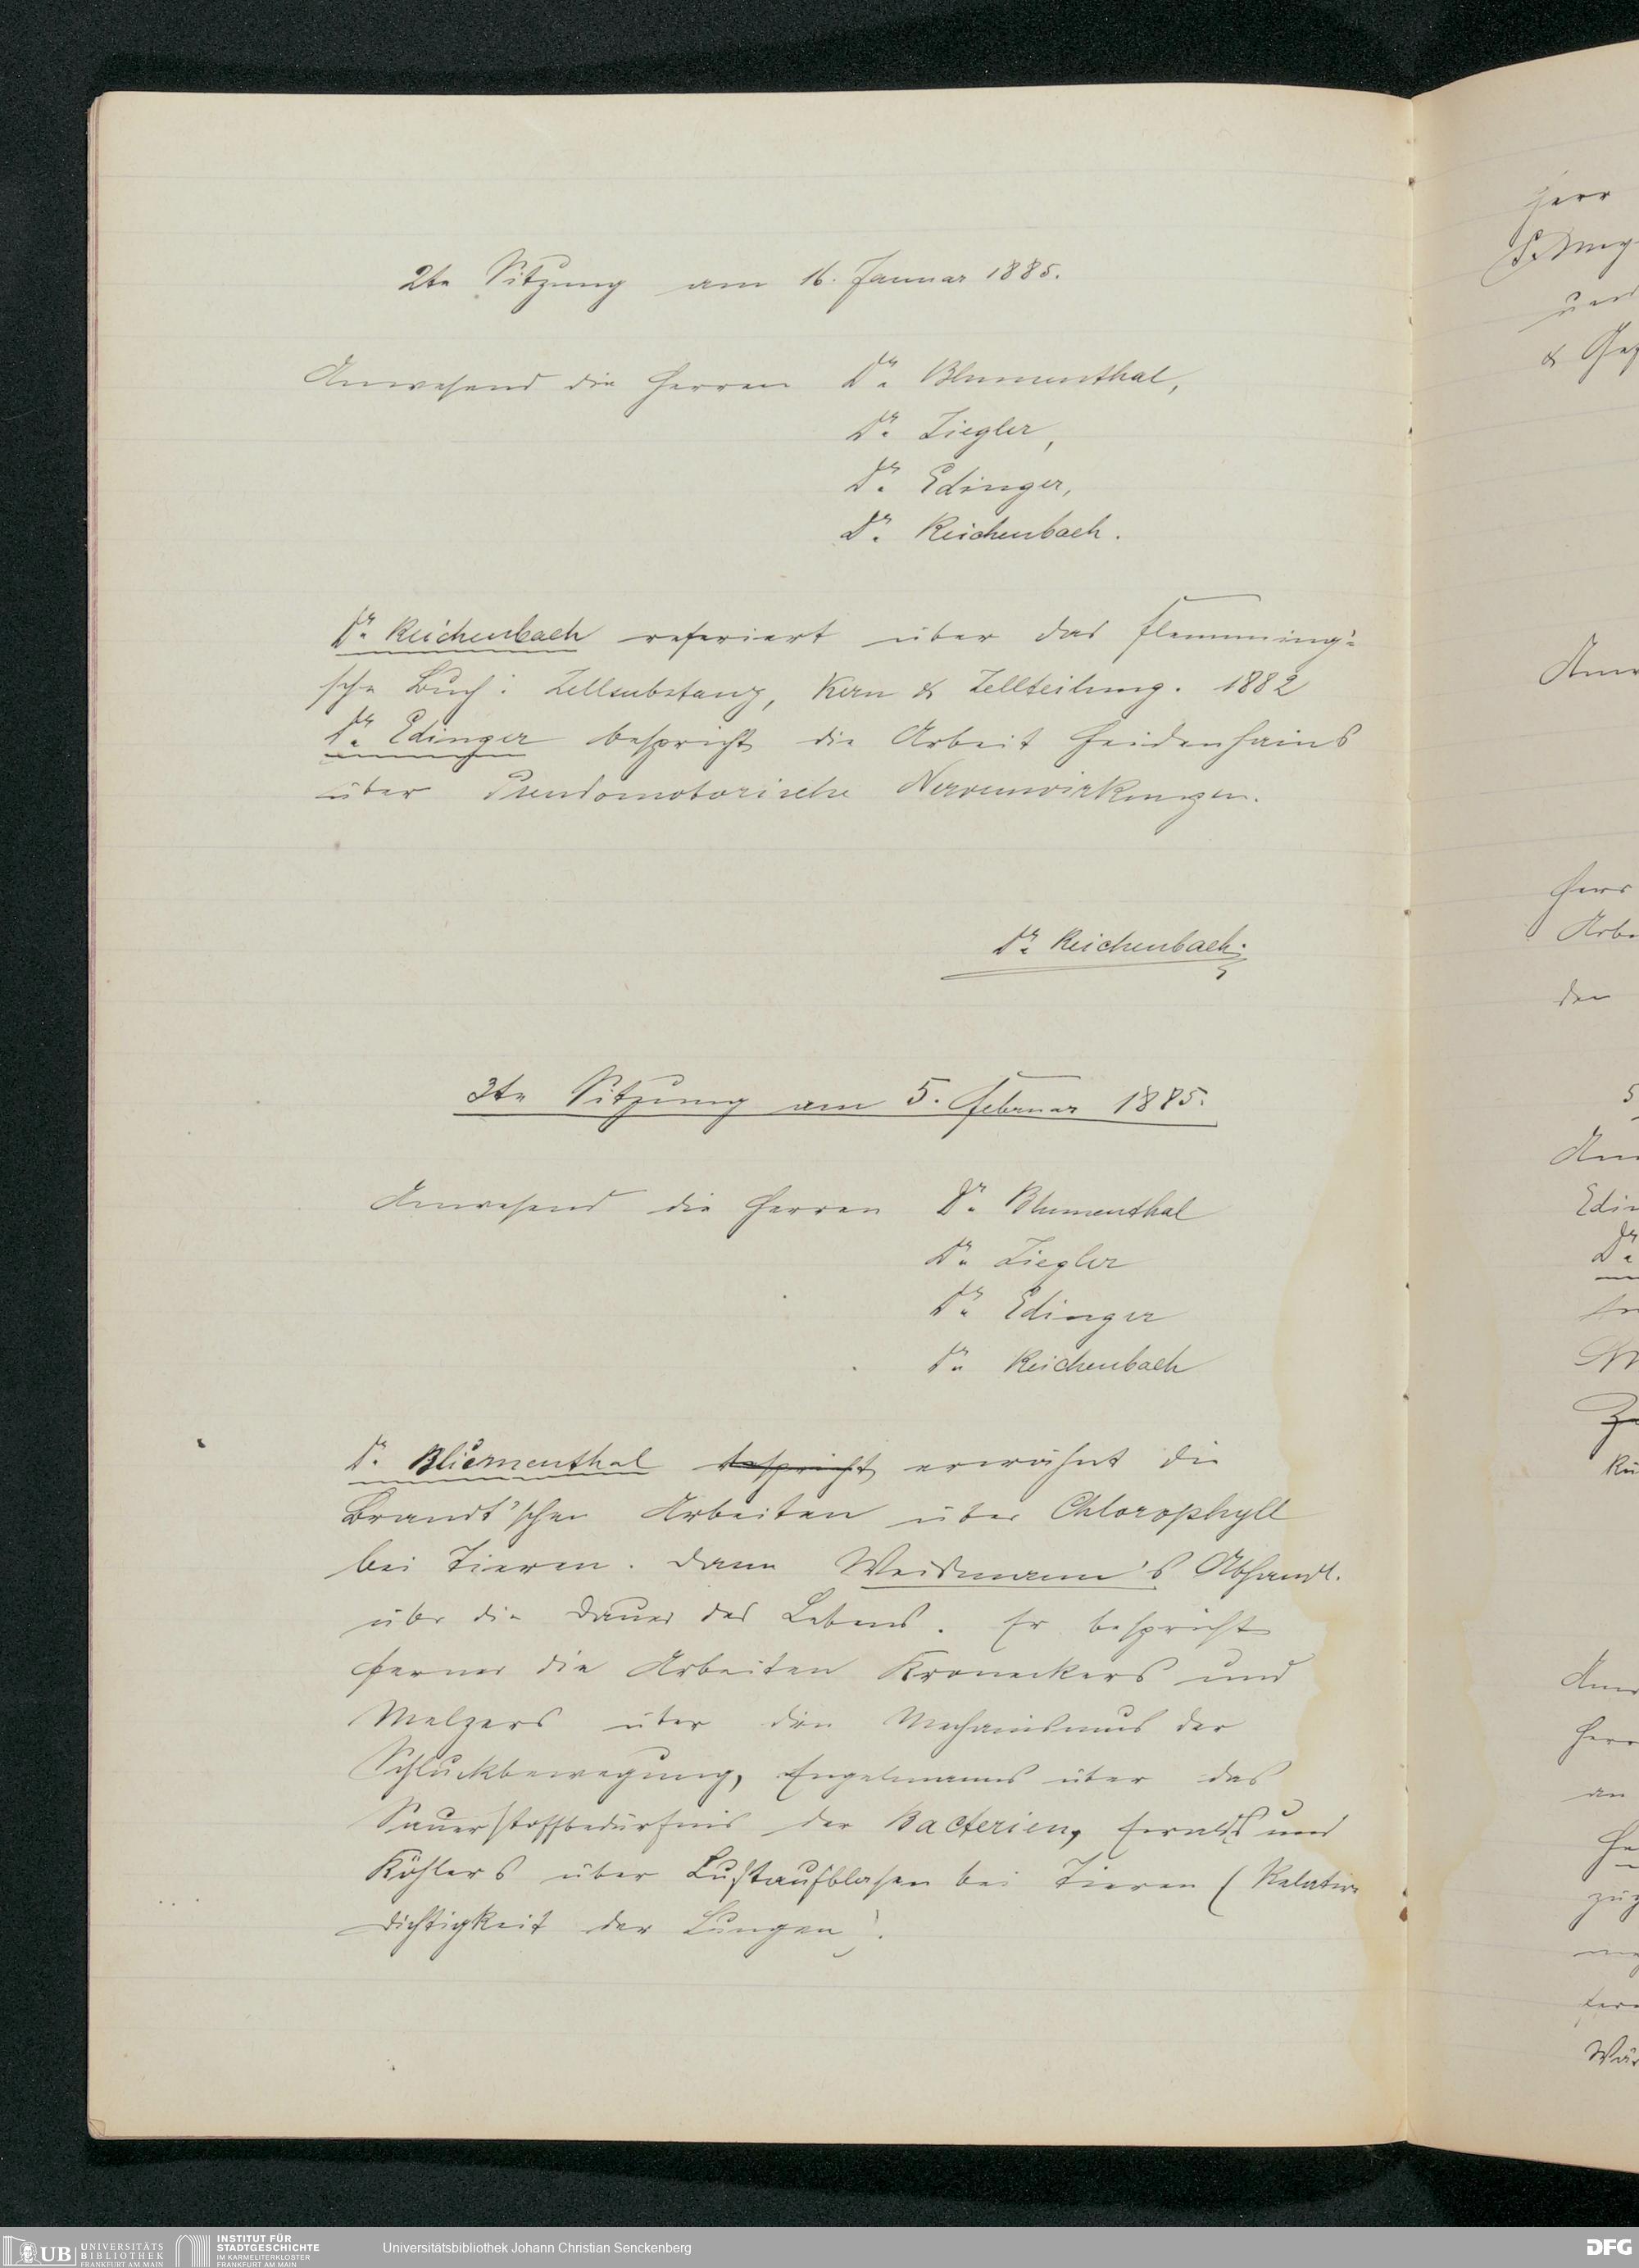 2te Sitzung am 16. Januar 1885.
Anwesend die Herren Dr. Blumenthal,
Dr. Ziegler,
Dr. Edinger,
Dr. Reichenbach.
Dr. Reichenbach referiert über das Flemming'-
sche Buch: Zellsubstanz, Kern & Zellteilung. 1882
Dr. Edinger bespricht die Arbeit Heidenhains
über Pseudomotorische Nervenwirkungen.
Dr. Reichenbach.
3te Sitzung am 5. Februar 1885.
Anwesend die Herren Dr. Blumenthal
Dr. Ziegler
Dr. Edinger
Dr. Reichenbach
Dr. Blumenthal bespricht erwähnt die
Brandt'schen Arbeiten über Chlorophyll
bei Tieren. Dann Weismann's Abhandl.
über die Dauer des Lebens. Er bespricht
ferner die Arbeiten Kroneckers und
Melzers über den Mechanismus der
Schluckbewegung, Engelmanns über das
Sauerstoffbedürfnis der Bacterien, Ewalds und
Köhlers über Luftaufblasen bei Tieren (Relative
Dichtigkeit der Lungen).
Herr
und
Herr
den
Dr.
Herr
an
UB UNIVERSITÄTS
BIBLIOTHEK
FRANKFURT AM MAIN
INSTITUT FÜR
STADTGESCHICHTE
IM KARMELITERKLOSTER
FRANKFURT AM MAIN
Universitätsbibliothek Johann Christian Senckenberg
DFG